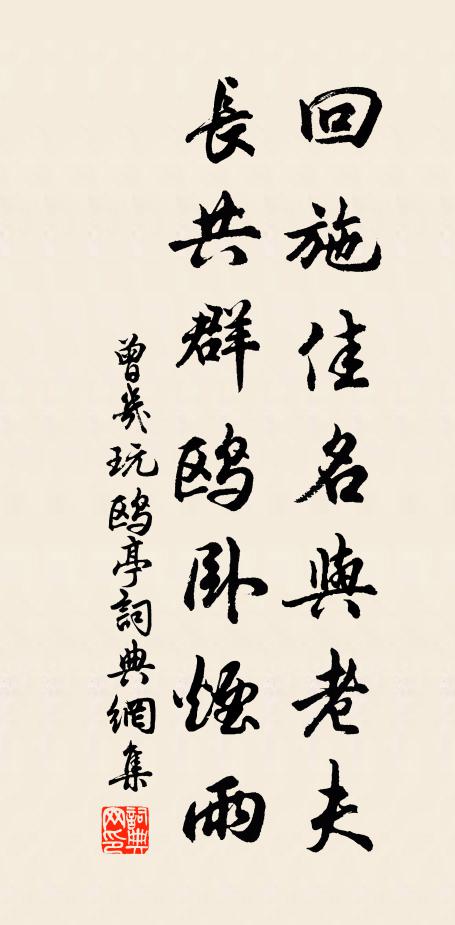 回施佳名與老夫
長共群鷗卧煙雨
曾幾玩鷗亭詞典網集
詞典網印